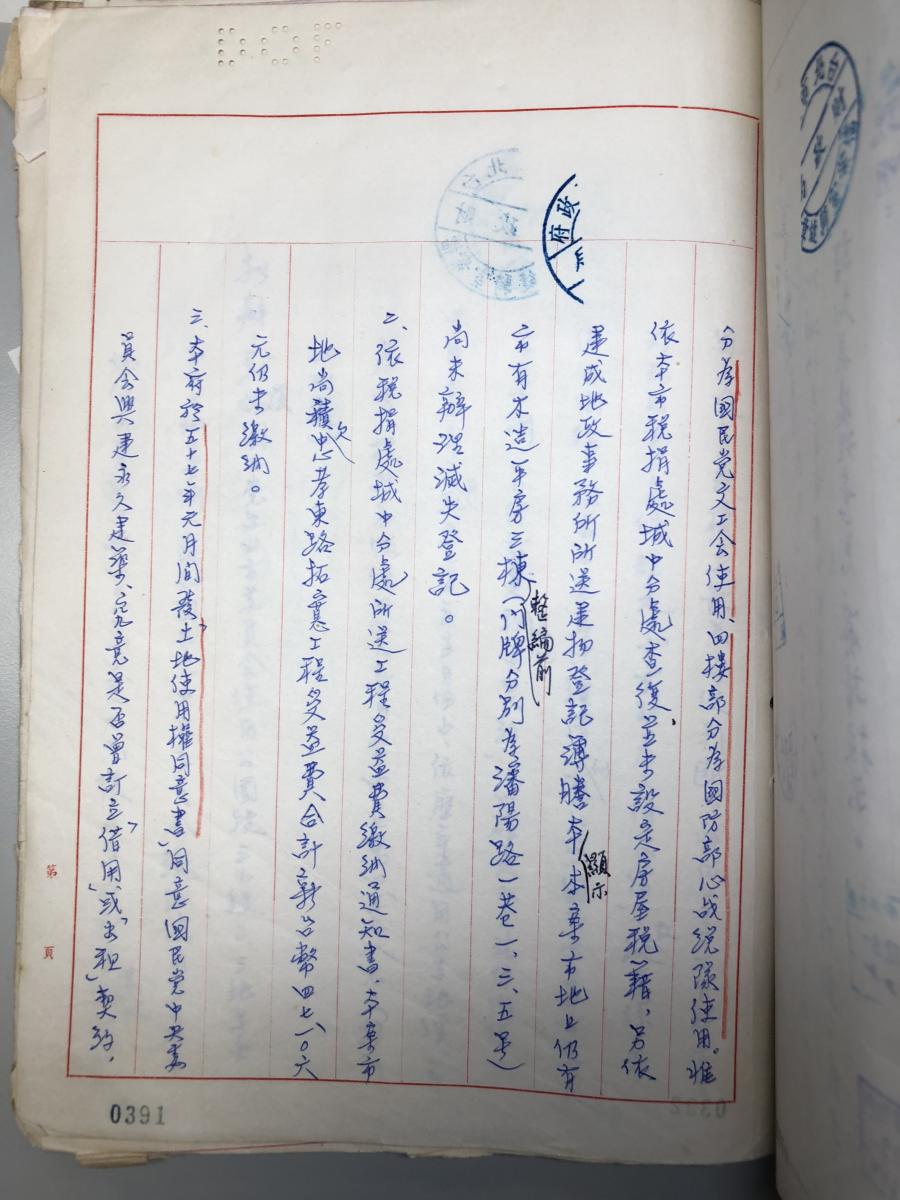 分為國民党文工会使用、四樓部分為國防部心战総隊使用。惟
依本市税捐處城中分處查復，並未設定房屋税籍，另依
建成地政事務所所送建物登記簿謄本顯示本案市地上仍有
市有木造平房三棟（整編前門牌分別為瀋陽路一巷一、三、五号）
尚未辦理滅失登記。
二、依税捐處城中分處所送工程受益費繳納通知書，本案市
地尚積欠忠孝東路拓寬工程受益費合計新台幣四七、一〇六
元仍未繳納。
三、本府於五十七年元月間發「土地使用權同意書」同意國民党中央委
員会興建永久建築、究竟是否曾訂立「借用」或「出租」契約，
第 頁
0391
政府